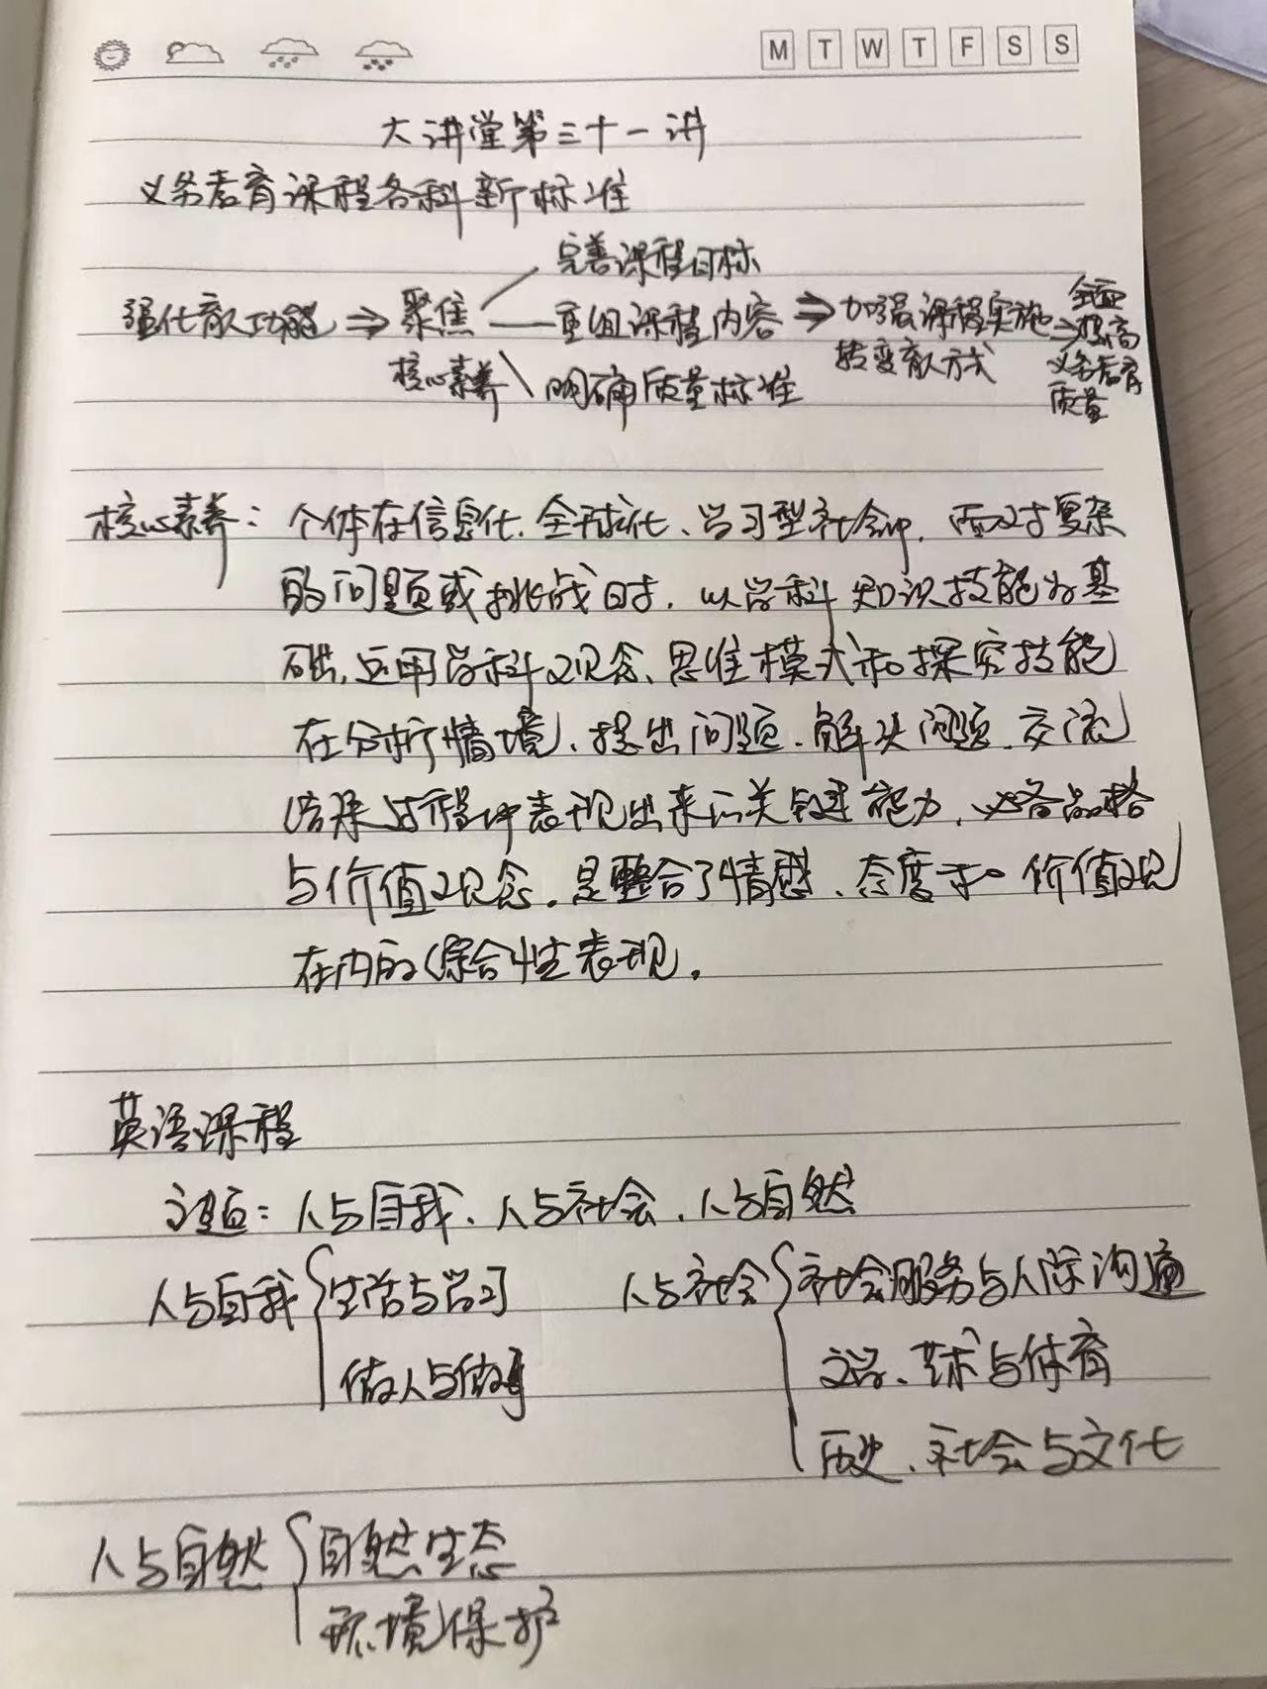 M T W T F S S
大讲堂第三十一讲
义务教育课程各科新标准
完善课程目标
强化育人功能 ⇒ 聚焦 — 重组课程内容 ⇒ 加强课程实施 → 全面
核心素养 \ 明确质量标准 转变育人方式 提高
义务教育
质量
核心素养: 个体在信息化、全球化、学习型社会中, 面对复杂
的问题或挑战时, 以学科知识技能为基
础, 运用学科观念、思维模式和探究技能
在分析情境、提出问题、解决问题、交流
结果过程中表现出来的关键能力、必备品格
与价值观念。是整合了情感、态度和价值观
在内的综合性表现。
英语课程
主题: 人与自我、人与社会、人与自然
人与自我 { 生活与学习 人与社会 { 社会服务与人际沟通
做人与做事 文学、艺术与体育
历史、社会与文化
人与自然 { 自然生态
环境保护